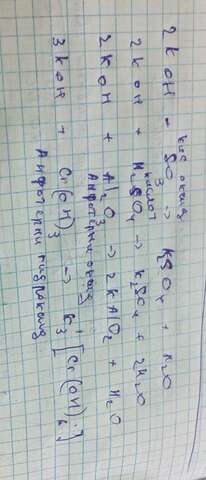 кис оксид
2 KOH + SO₃ → K₂SO₄ + H₂O
кислот
2 KOH + H₂SO₄ → K₂SO₄ + 2H₂O
2 KOH + Al₂O₃ → 2 KAlO₂ + H₂O
Амфотерни оксид
3 KOH + Cr(OH)₃ → K₃[Cr(OH)₆]
Амфотерни гидроксид